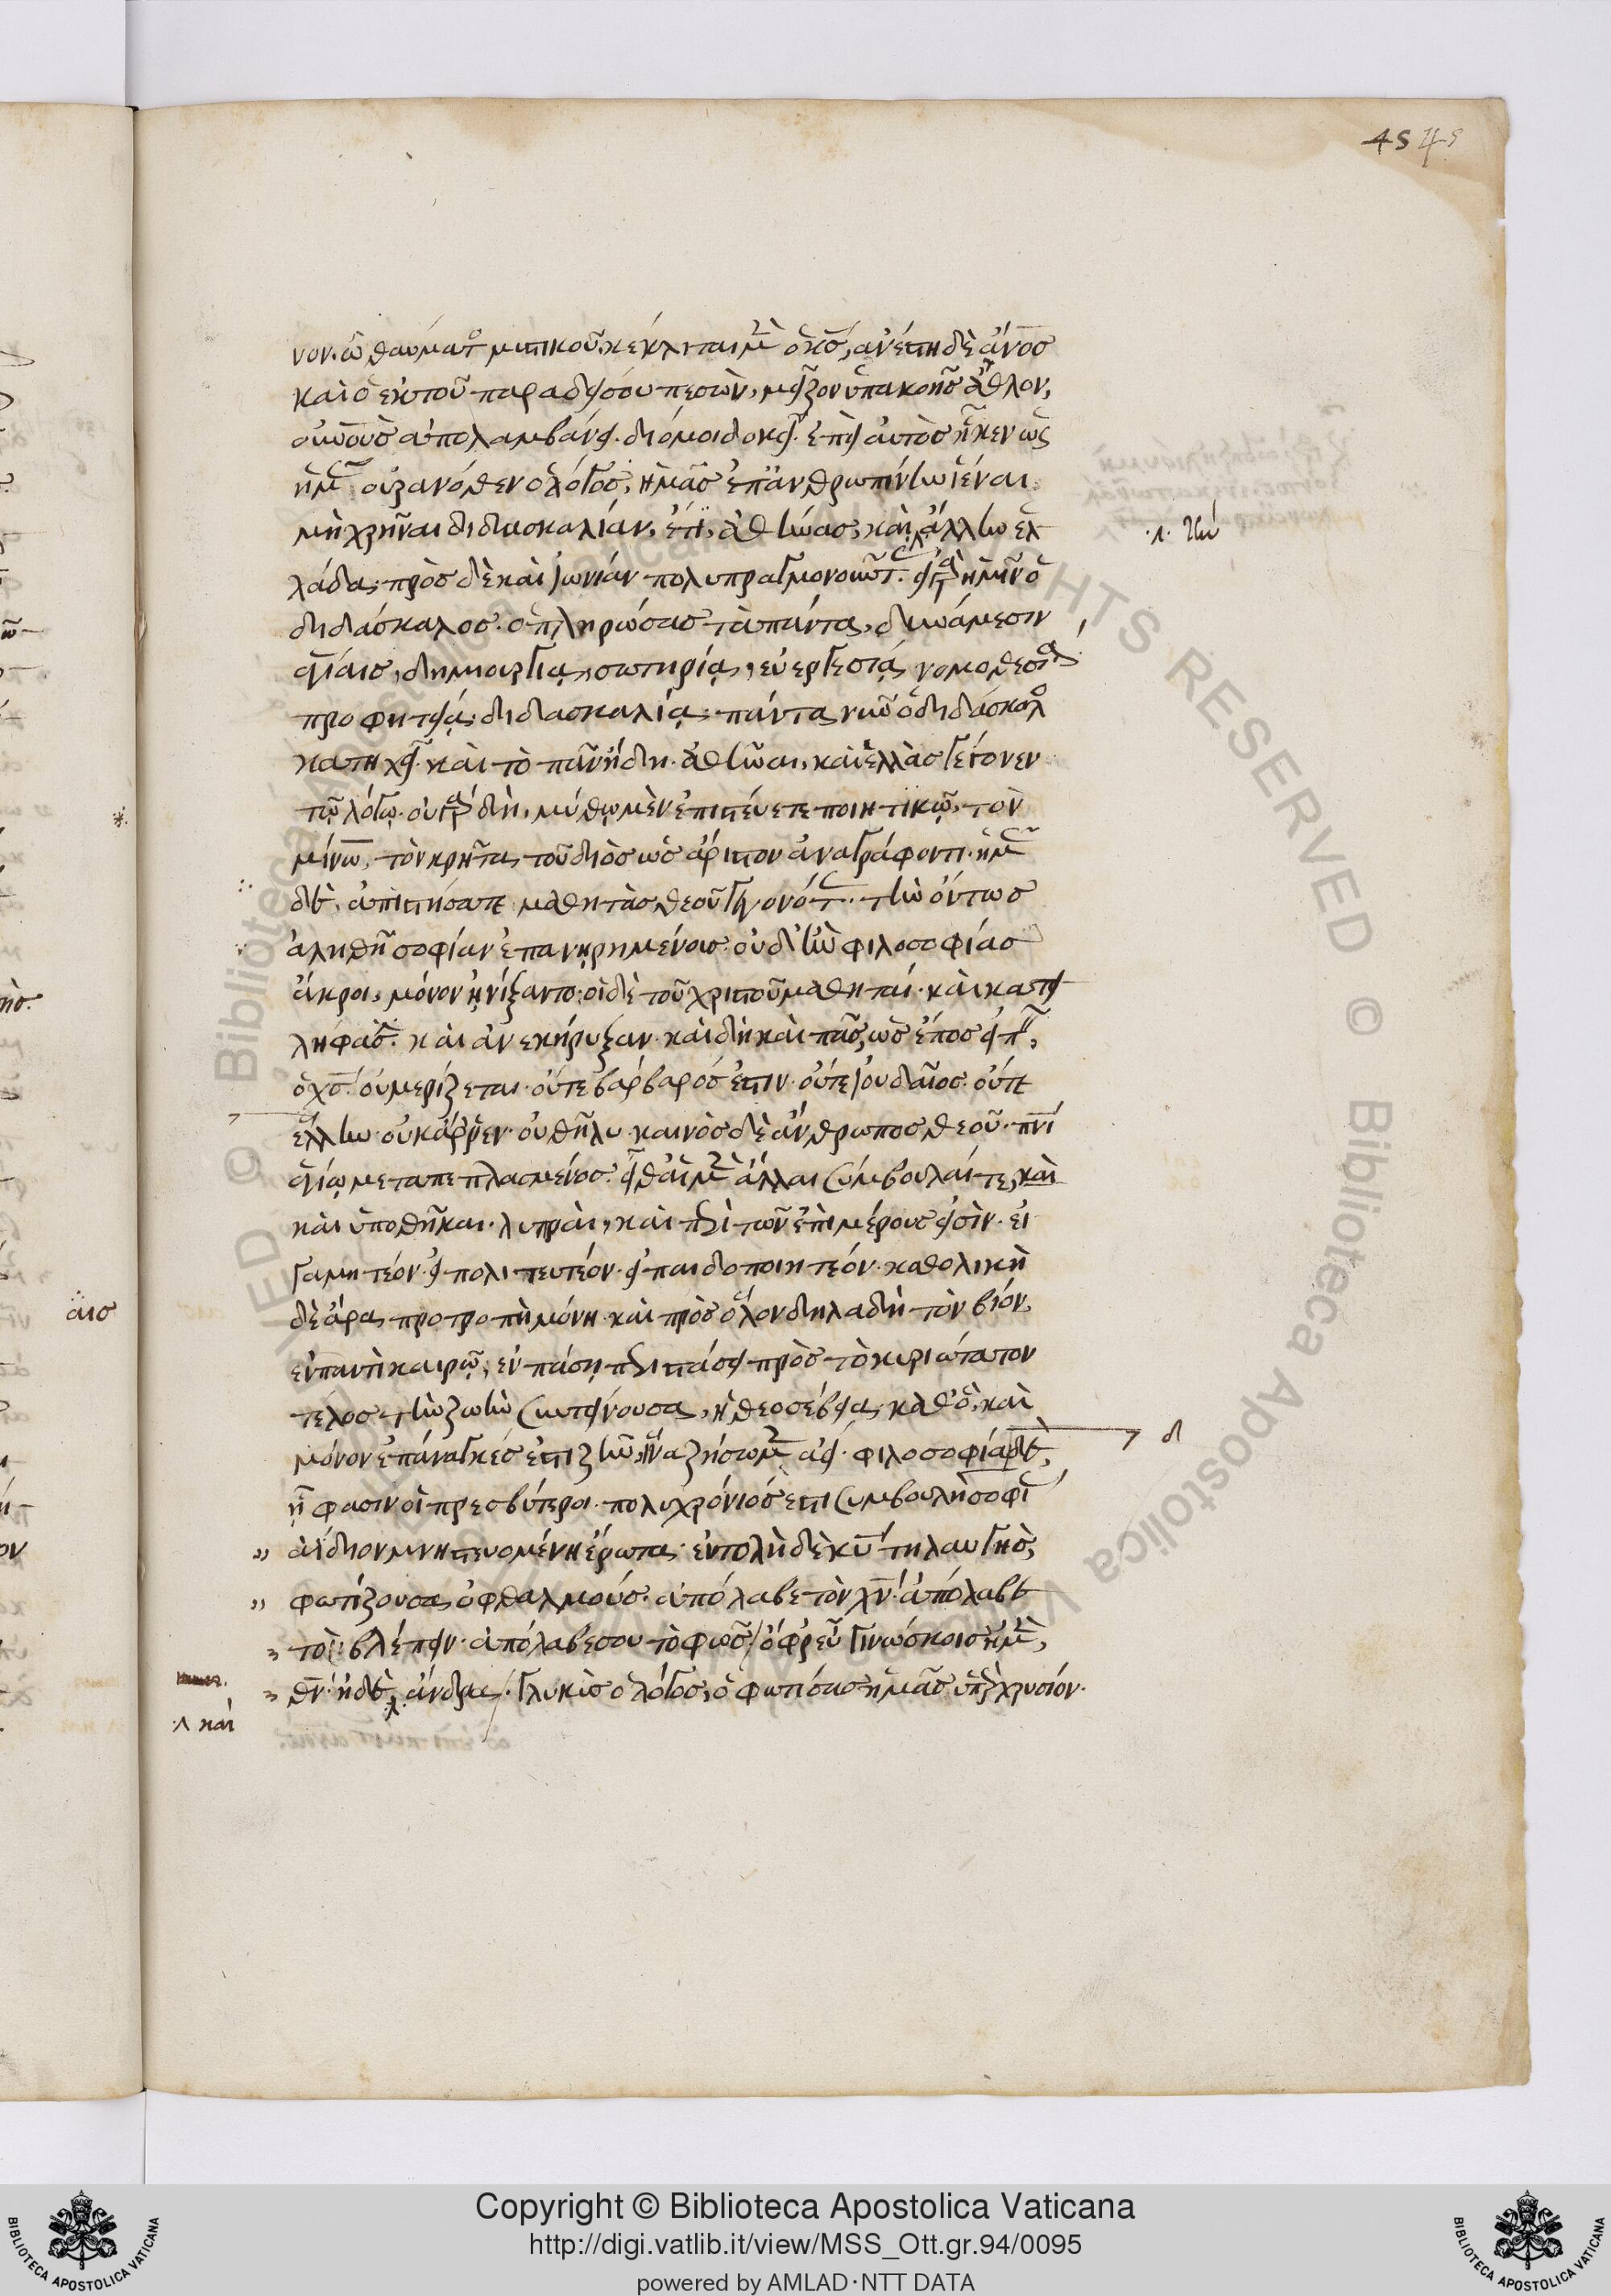 45 45
νον. ὢ θαύματος μυστικοῦ. κέκλιται μὲν ὁ κς, ἀνέστη δὲ ἄνος
καὶ ὁ ἐκ τοῦ παραδείσου πεσὼν, μεῖζον ὑπακοῆς ἆθλον,
οὐνοὺς ἀπολαμβάνει. διό μοι δοκεῖ. ἐπεὶ αὐτὸς ἧκεν ὡς
ἡμᾶς οὐρανόθεν ὁ λόγος, ἡμᾶς ἐπ' ἀνθρωπίνην ἰέναι
μὴ χρῆναι διδασκαλίαν, ἔτι, ἀθήνας, καὶ ἄλλην ἑλ
.λ. τὴν
λάδα, πρὸς δὲ καὶ ἰωνίαν πολυπραγμονοῦντας. εἰ γὰρ ἡμῖν ὁ
διδάσκαλος. ὁ πληρώσας τὰ πάντα, δυνάμεσιν
ἁγίαις, δημιουργίᾳ, σωτηρίᾳ, εὐεργεσίᾳ, νομοθεσίᾳ
προφητείᾳ, διδασκαλίᾳ, πάντα νῦν ὁ διδάσκαλος
κατηχεῖ. καὶ τὸ πᾶν ἤδη. ἀθῆναι, καὶ ἑλλὰς γέγονεν
τῷ λόγῳ. οὐ γὰρ δὴ, μύθῳ μὲν ἐπιστεύετε ποιητικῷ, τὸν
μίνω, τὸν κρῆτα, τοῦ διὸς ὡς ἄριστον ἀναγράφοντι. ἡμᾶς
δὲ, ἀπιστήσατε μαθητὰς θεοῦ γεγονότας. τὴν ὄντως
ἀληθῆ σοφίαν ἐπανῃρημένοις. οὐδ' ἣν φιλοσοφίας
ἄκροι, μόνον ᾐνίξαντο. οἱ δὲ τοῦ χριστοῦ μαθηταί. καὶ κατει
λήφασι. καὶ ἀνεκήρυξαν. καὶ δὴ καὶ πᾶς, ὡς ἔπος εἰπεῖν,
ὁ χς. οὐ μερίζεται. οὔτε βάρβαρός ἐστιν. οὔτε ἰουδαῖος. οὔτε
ἕλλην. οὐκ ἄρρεν. οὐ θῆλυ. καινὸς δὲ ἄνθρωπος θεοῦ. πνι
ἁγίῳ μεταπεπλασμένος. εἶθ' αἱ μὲν ἄλλαι συμβουλαί τε, καὶ
καὶ ὑποθῆκαι. λυπραὶ, καὶ περὶ τῶν ἐπὶ μέρους εἰσὶν. εἰ
γαμητέον. εἰ πολιτευτέον. εἰ παιδοποιητέον. καθολικὴ
δὲ ἄρα, προτροπὴ μόνη. καὶ πρὸς ὅλον δηλαδὴ τὸν βίον.
ἐν παντὶ καιρῷ, ἐν πάσῃ περιστάσει πρὸς τὸ κυριώτατον
τέλος τὴν ζωὴν συντείνουσα, ἡ θεοσέβεια, καθ' ὃ, καὶ
μόνον ἐπάναγκές ἐστι ζῆν, ἵνα ζήσωμεν ἀεί. φιλοσοφία δὲ,
δ
ᾗ φασιν οἱ πρεσβύτεροι. πολυχρόνιός ἐστι συμβουλὴ. σοφίας
ἀΐδιον μνηστευομένη ἔρωτα. ἐντολὴ δὲ κυ τηλαυγὴς,
φωτίζουσα ὀφθαλμούς. ἀπόλαβε τὸν χν. ἀπόλαβε
τὸ βλέπειν. ἀπόλαβε σου τὸ φῶς. ὄφρ' εὖ γινώσκοις ἠμὲν,
θν. ἠδὲ ἄνδρα. γλυκὺς ὁ λόγος, ὁ φωτίσας ἡμᾶς ὑπὲρ χρυσίον.
.λ καί
αις
Copyright © Biblioteca Apostolica Vaticana
http://digi.vatlib.it/view/MSS_Ott.gr.94/0095
powered by AMLAD·NTT DATA